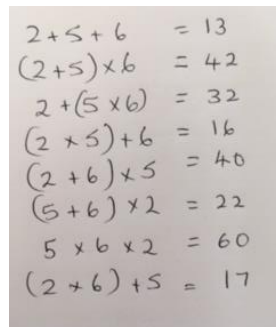 2+5+6 = 13
(2+5)×6 = 42
2+(5×6) = 32
(2×5)+6 = 16
(2+6)×5 = 40
(5+6)×2 = 22
5×6×2 = 60
(2×6)+5 = 17